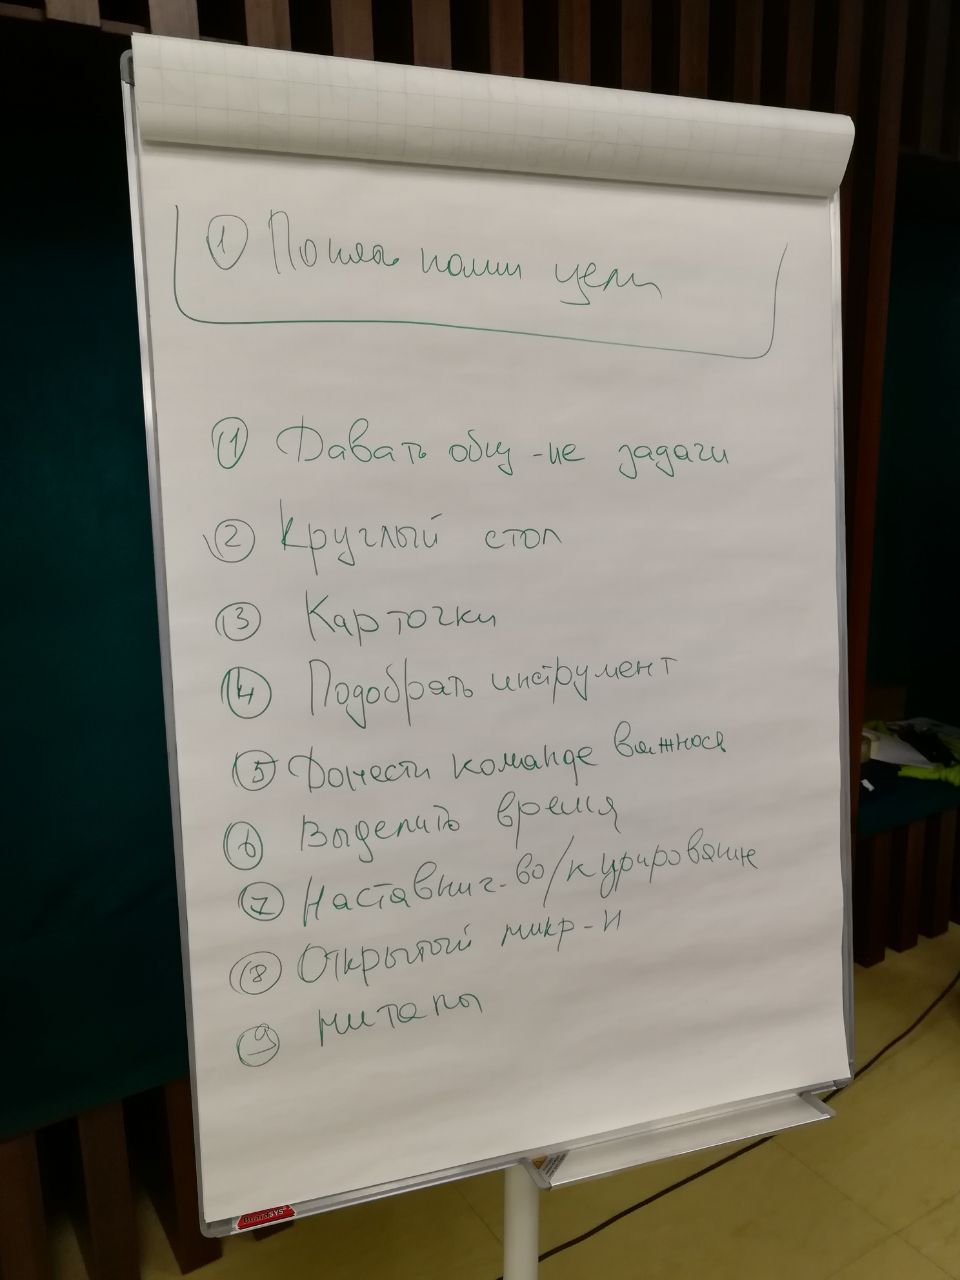 ① наши цели
① Давать общ-ие задачи
② Круглый стол
③ Карточки
④ Подобрать инструмент
⑤ Донести команде
⑥ Выделить время
⑦ Наставнич-во/курирование
⑧ Открытый микр-н
⑨ митапы